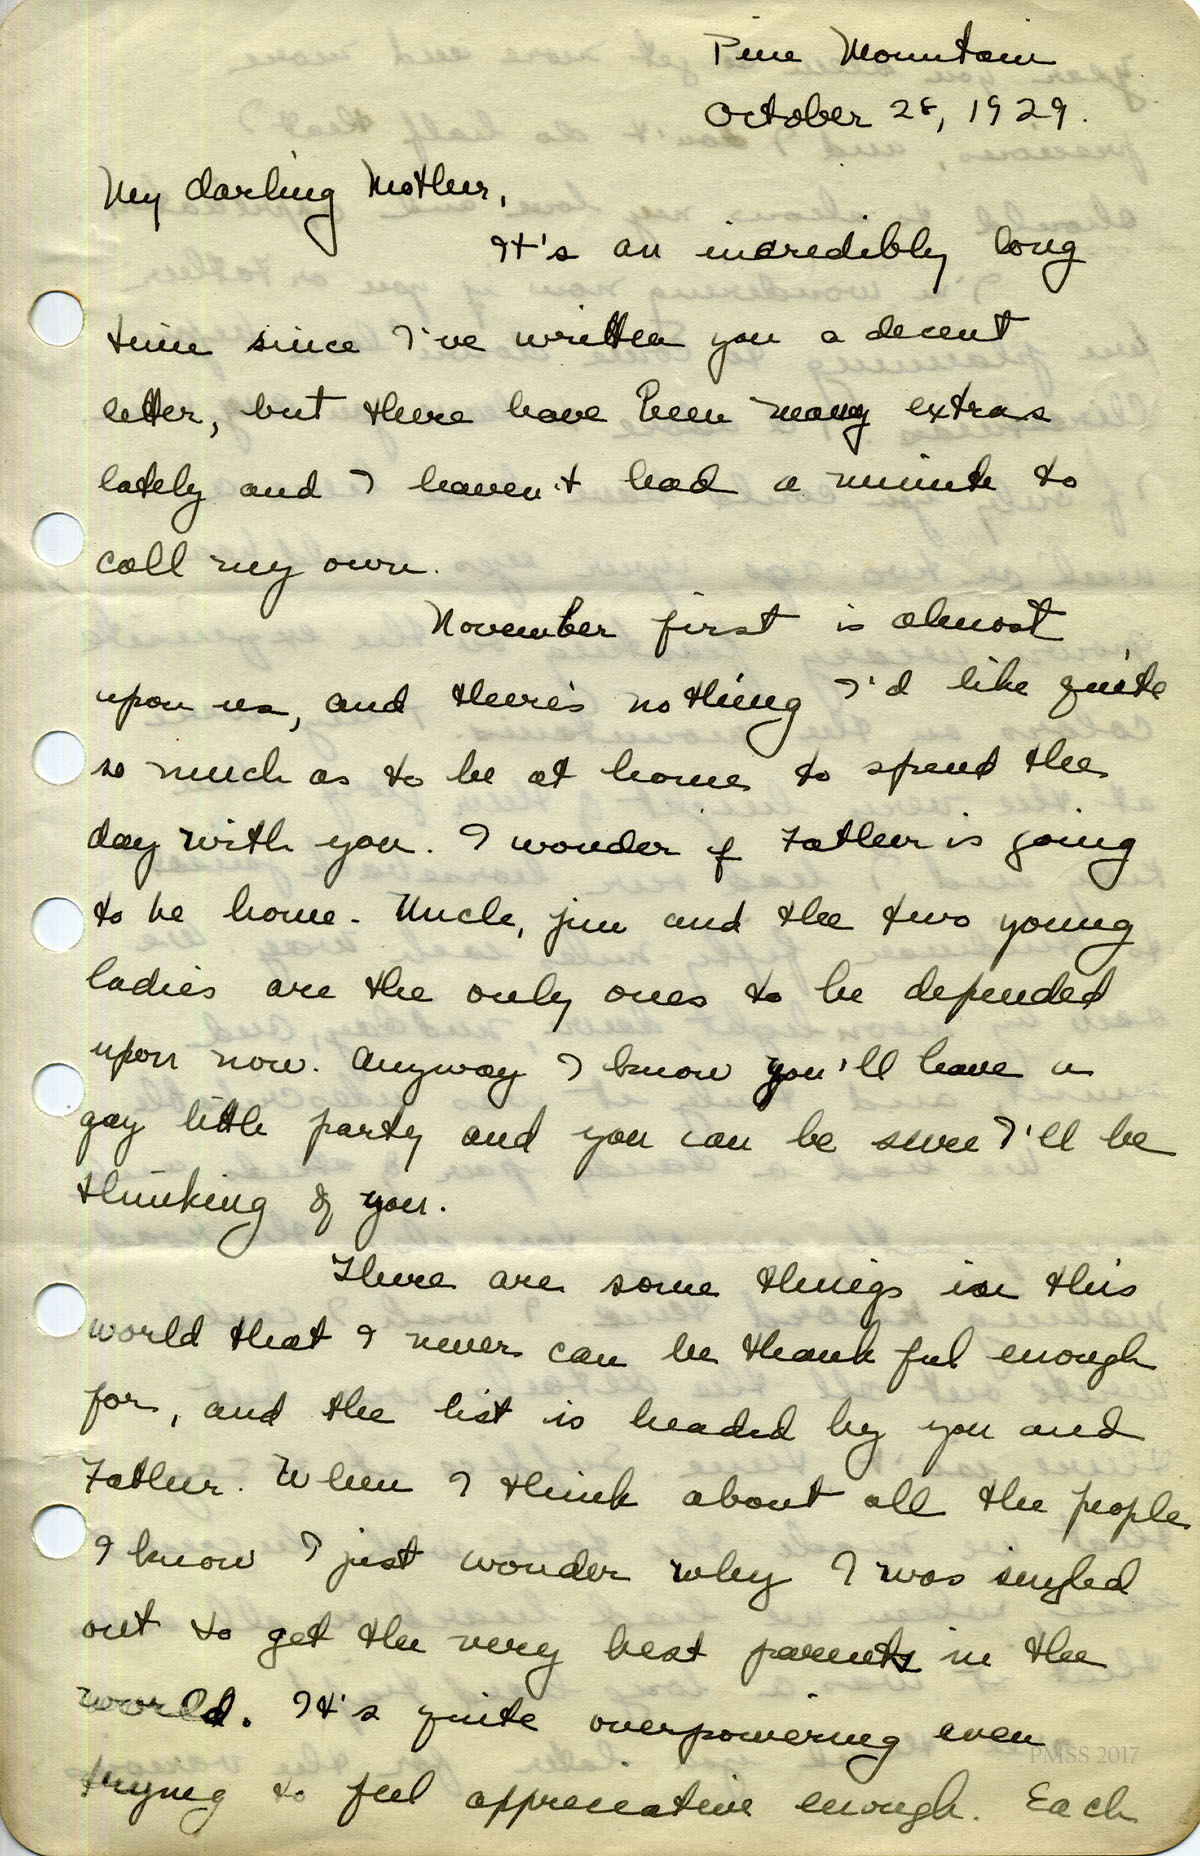 Pine Mountain
October 28, 1929.
My darling Mother,
It's an incredibly long
time since I've written you a decent
letter, but there have been many extras
lately and I haven't had a minute to
call my own.
November first is almost
upon us, and there's nothing I'd like quite
so much as to be at home to spend the
day with you. I wonder if Father is going
to be home. Uncle, jim and the two young
ladies are the only ones to be depended
upon now. Anyway I know you'll have a
gay little party and you can be sure I'll be
thinking of you.
There are some things in this
world that I never can be thankful enough
for, and the list is headed by you and
Father. When I think about all the people
I know I just wonder why I was singled
out to get the very best parents in the
world. It's quite overpowering even
trying to feel appreciative enough. Each
PMSS 2017